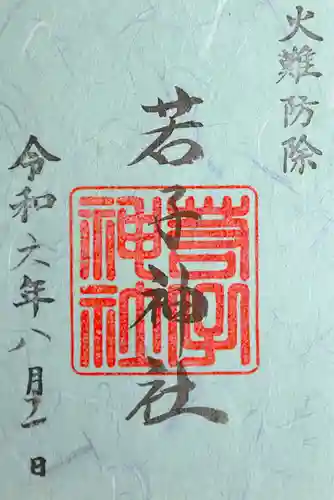 火難防除
若子神社
若子神社
令和六年八月十一日